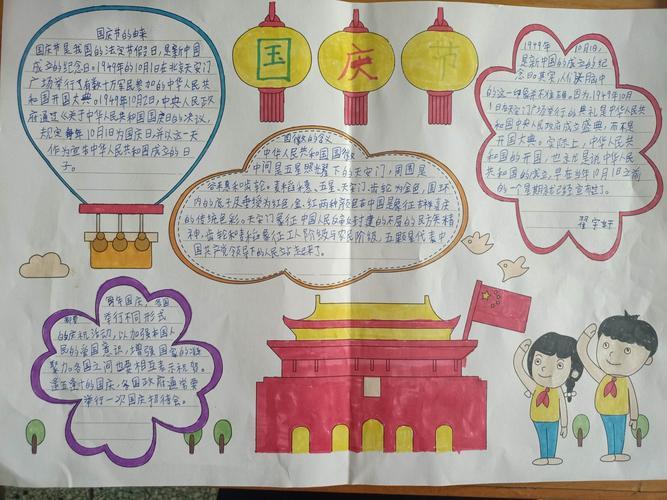 国庆节
国庆节的由来
国庆节是我国的法定节假日,是新中国
成立的纪念日。1949年的10月1日在北京天安门
广场举行了有数十万军民参加的中华人民共
和国开国大典。1949年10月2日,中央人民政
府通过《关于中华人民共和国国庆日的决议》,
规定每年10月1日为国庆日,并以这一天
作为宣布中华人民共和国成立的日
子。
国徽的含义
中华人民共和国国徽
中间是五星照耀下的天安门,周围是
谷穗和齿轮。麦稻穗、五星、天安门、齿轮为金色,圆环
内的底子及垂绶为红色。金、红两种颜色在中国是象征吉祥喜庆
的传统色彩。天安门象征中国人民反帝反封建的不屈的民族精
神;齿轮和麦稻穗象征工人阶级与农民阶级;五颗星代表中
国共产党领导下的人民大团结。
1949年 10月1日,
是新中国的成立的纪
念日。其实,人们头脑中
的这一印象并不准确。因为,1949年10月
1日在天安门广场举行的典礼是中华人民共
和国中央人民政府成立盛典,而不是
开国大典。实际上,中华人民共和
国的开国,也就是说中华人民共
和国的成立,早在当年10月1日之前
的一个星期就已经宣布了。
每年国庆,各国
都要举行不同形式
的庆祝活动,以加强本国人
民的爱国意识,增强国家的凝
聚力。各国之间也要相互表示祝贺。
逢五逢十的国庆,各国政府通常要
举行一次国庆招待会。